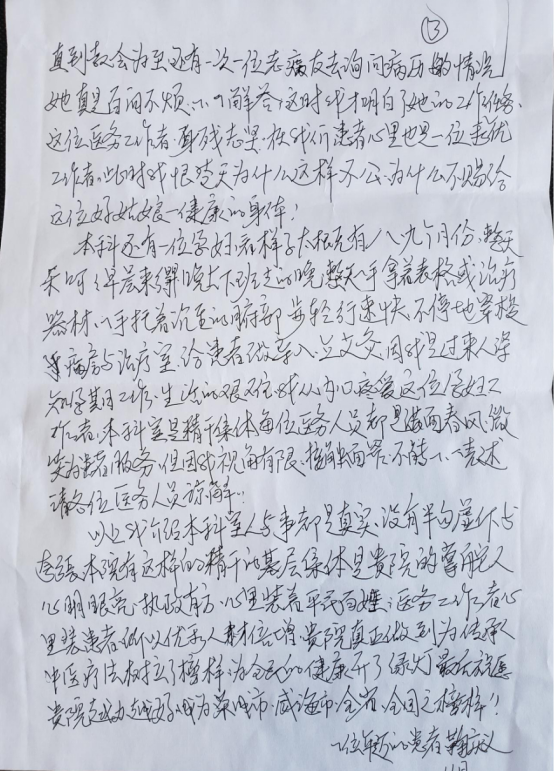 (13)
直到教会为至还有一次一位老病友去询问病历的情况
她真是百问不烦一一解答这时我才明白了她的工作任务
这位医务工作者身残志坚在我们患者心里也是一位最优
工作者此时我恨苍天为什么这样不公为什么不赐给
这位好姑娘一健康的身体！
本科还有一位孕妇看样子大概有八九个月份整天
早来得晚上下班走的晚整天一手拿着表格或治病
器材一手托着沉重的腹部步轻行速快不停地穿梭
于病房与治疗室给患者因我是过来人深
知孕期工作生活的艰难我从内心疼爱这位孕妇工
作者本科室是精干集体每位医务人员都是满面春风微
笑为患者服务但因我视角有限接触面窄不能一一表述
请各位医务人员谅解
以上我介绍本科室人与事都是真实没有半句虚作与
夸张本院有这样的精干的基层集体是贵院的掌舵人
心明眼亮执政有方心里装着平民百姓医务工作者心
里装患者所以优秀人才倍增贵院真正做到为传承
中医疗法树立了榜样为全民的健康开了绿灯最后祝愿
贵院越办越好成为荣成市威海市全省全国之榜样！！
一位年近的患者